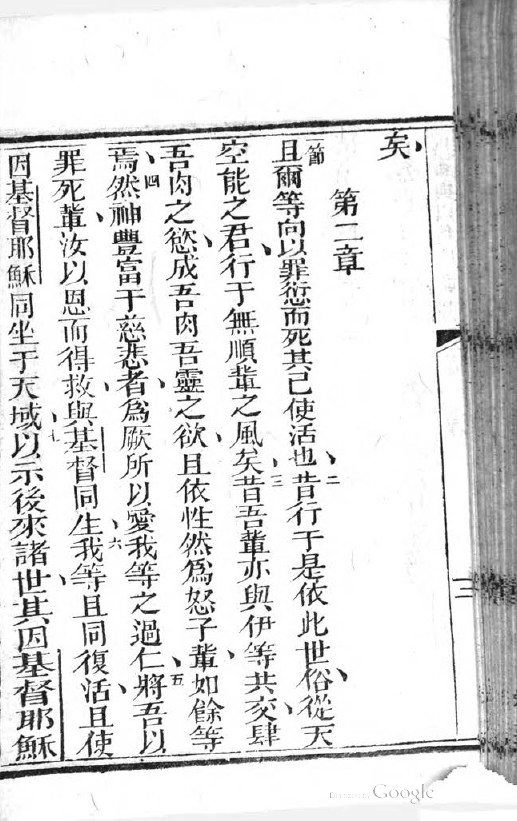 矣、
第二章
節且爾等向以罪愆而死其已使活也、二昔行于是依此世俗、從天
空能之君、行于無順輩之風矣、三昔吾輩亦與伊等共交、肆
吾肉之慾、成吾肉吾靈之欲、且依性然為怒子輩、如餘等
焉、四然神豐富于慈悲者、為厥所以愛我等之過仁、五將吾以
罪死輩、汝以恩而得救、與基督同生、六我等且同復活、且使
因基督耶穌同坐于天域、七以示後來諸世、其因基督耶穌
三
Digitized by Google